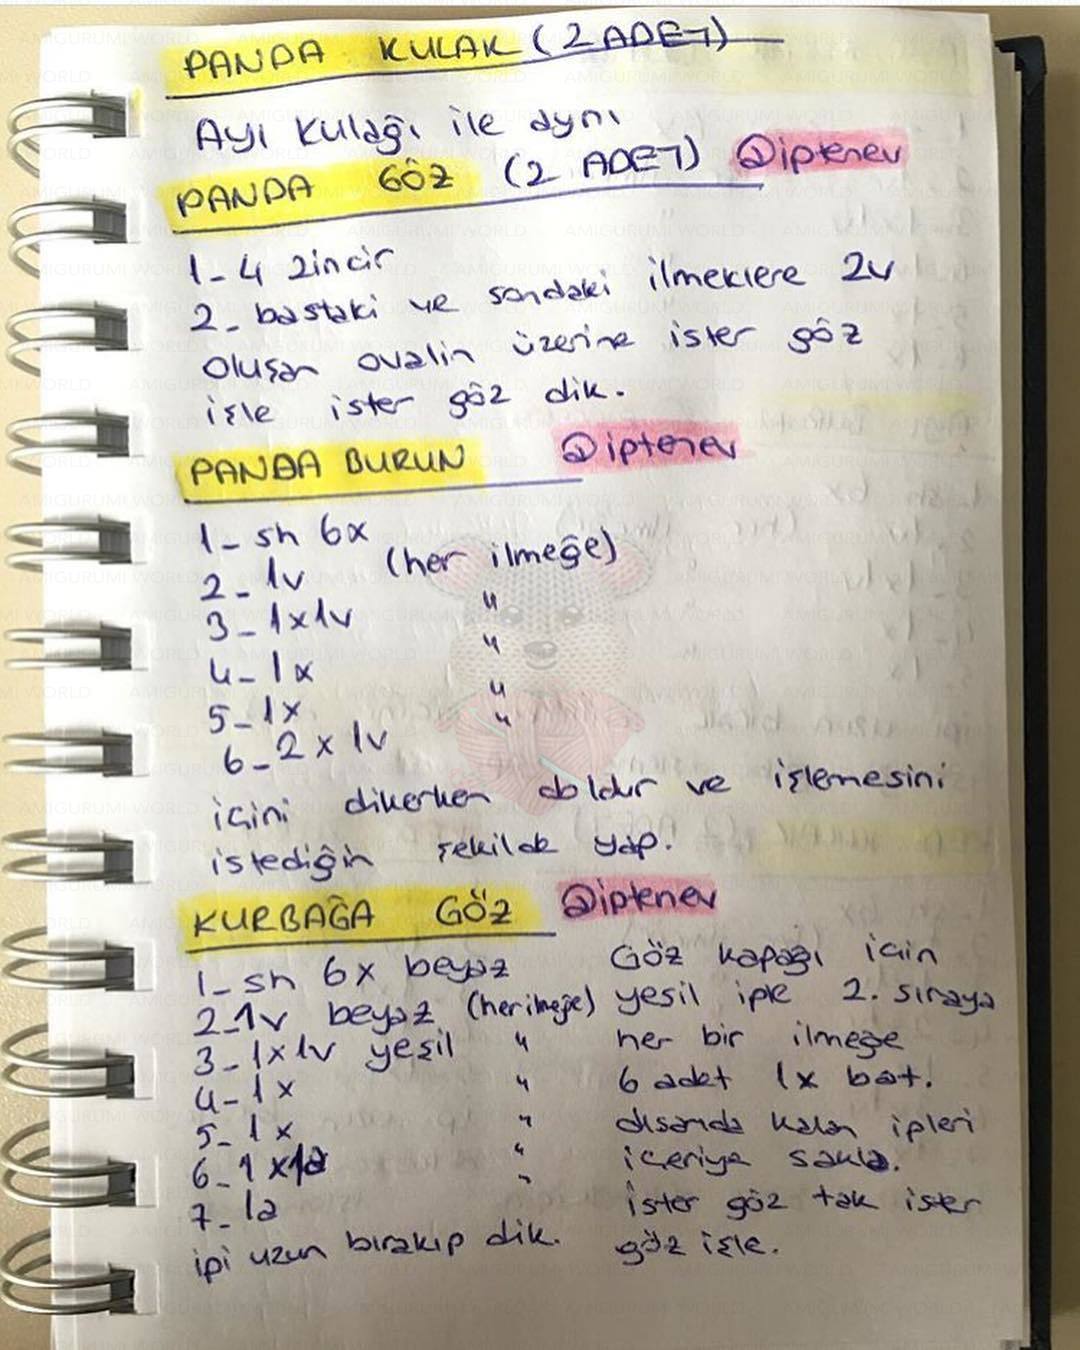 PANDA KULAK (2 ADET)
Ayı kulağı ile aynı
PANDA GÖZ (2 ADET) @iptenev
1_ 4 zincir
2_ bastaki ve sondaki ilmeklere 2v
oluşan ovalin üzerine ister göz
işle ister göz dik.
PANDA BURUN @iptenev
1_ sh 6x
2_ 1v (her ilmeğe)
3_ 1x1v "
4_ 1x "
5_ 1x "
6_ 2x1v "
içini dikerken doldur ve işlemesini
istediğin şekilde yap.
KURBAĞA GÖZ @iptenev
1_ sh 6x beyaz
2_1v beyaz (her ilmeğe)
3_ 1x1v yeşil "
4_ 1x "
5_ 1x "
6_ 1x1a "
7_ 1a "
ipi uzun bırakıp dik.
Göz kapağı için
yesil iple 2. sıraya
her bir ilmeğe
6 adet 1x bat.
dısarıda kalan ipleri
içeriye sakla.
ister göz tak ister
göz işle.
AMIGURUMI WORLD